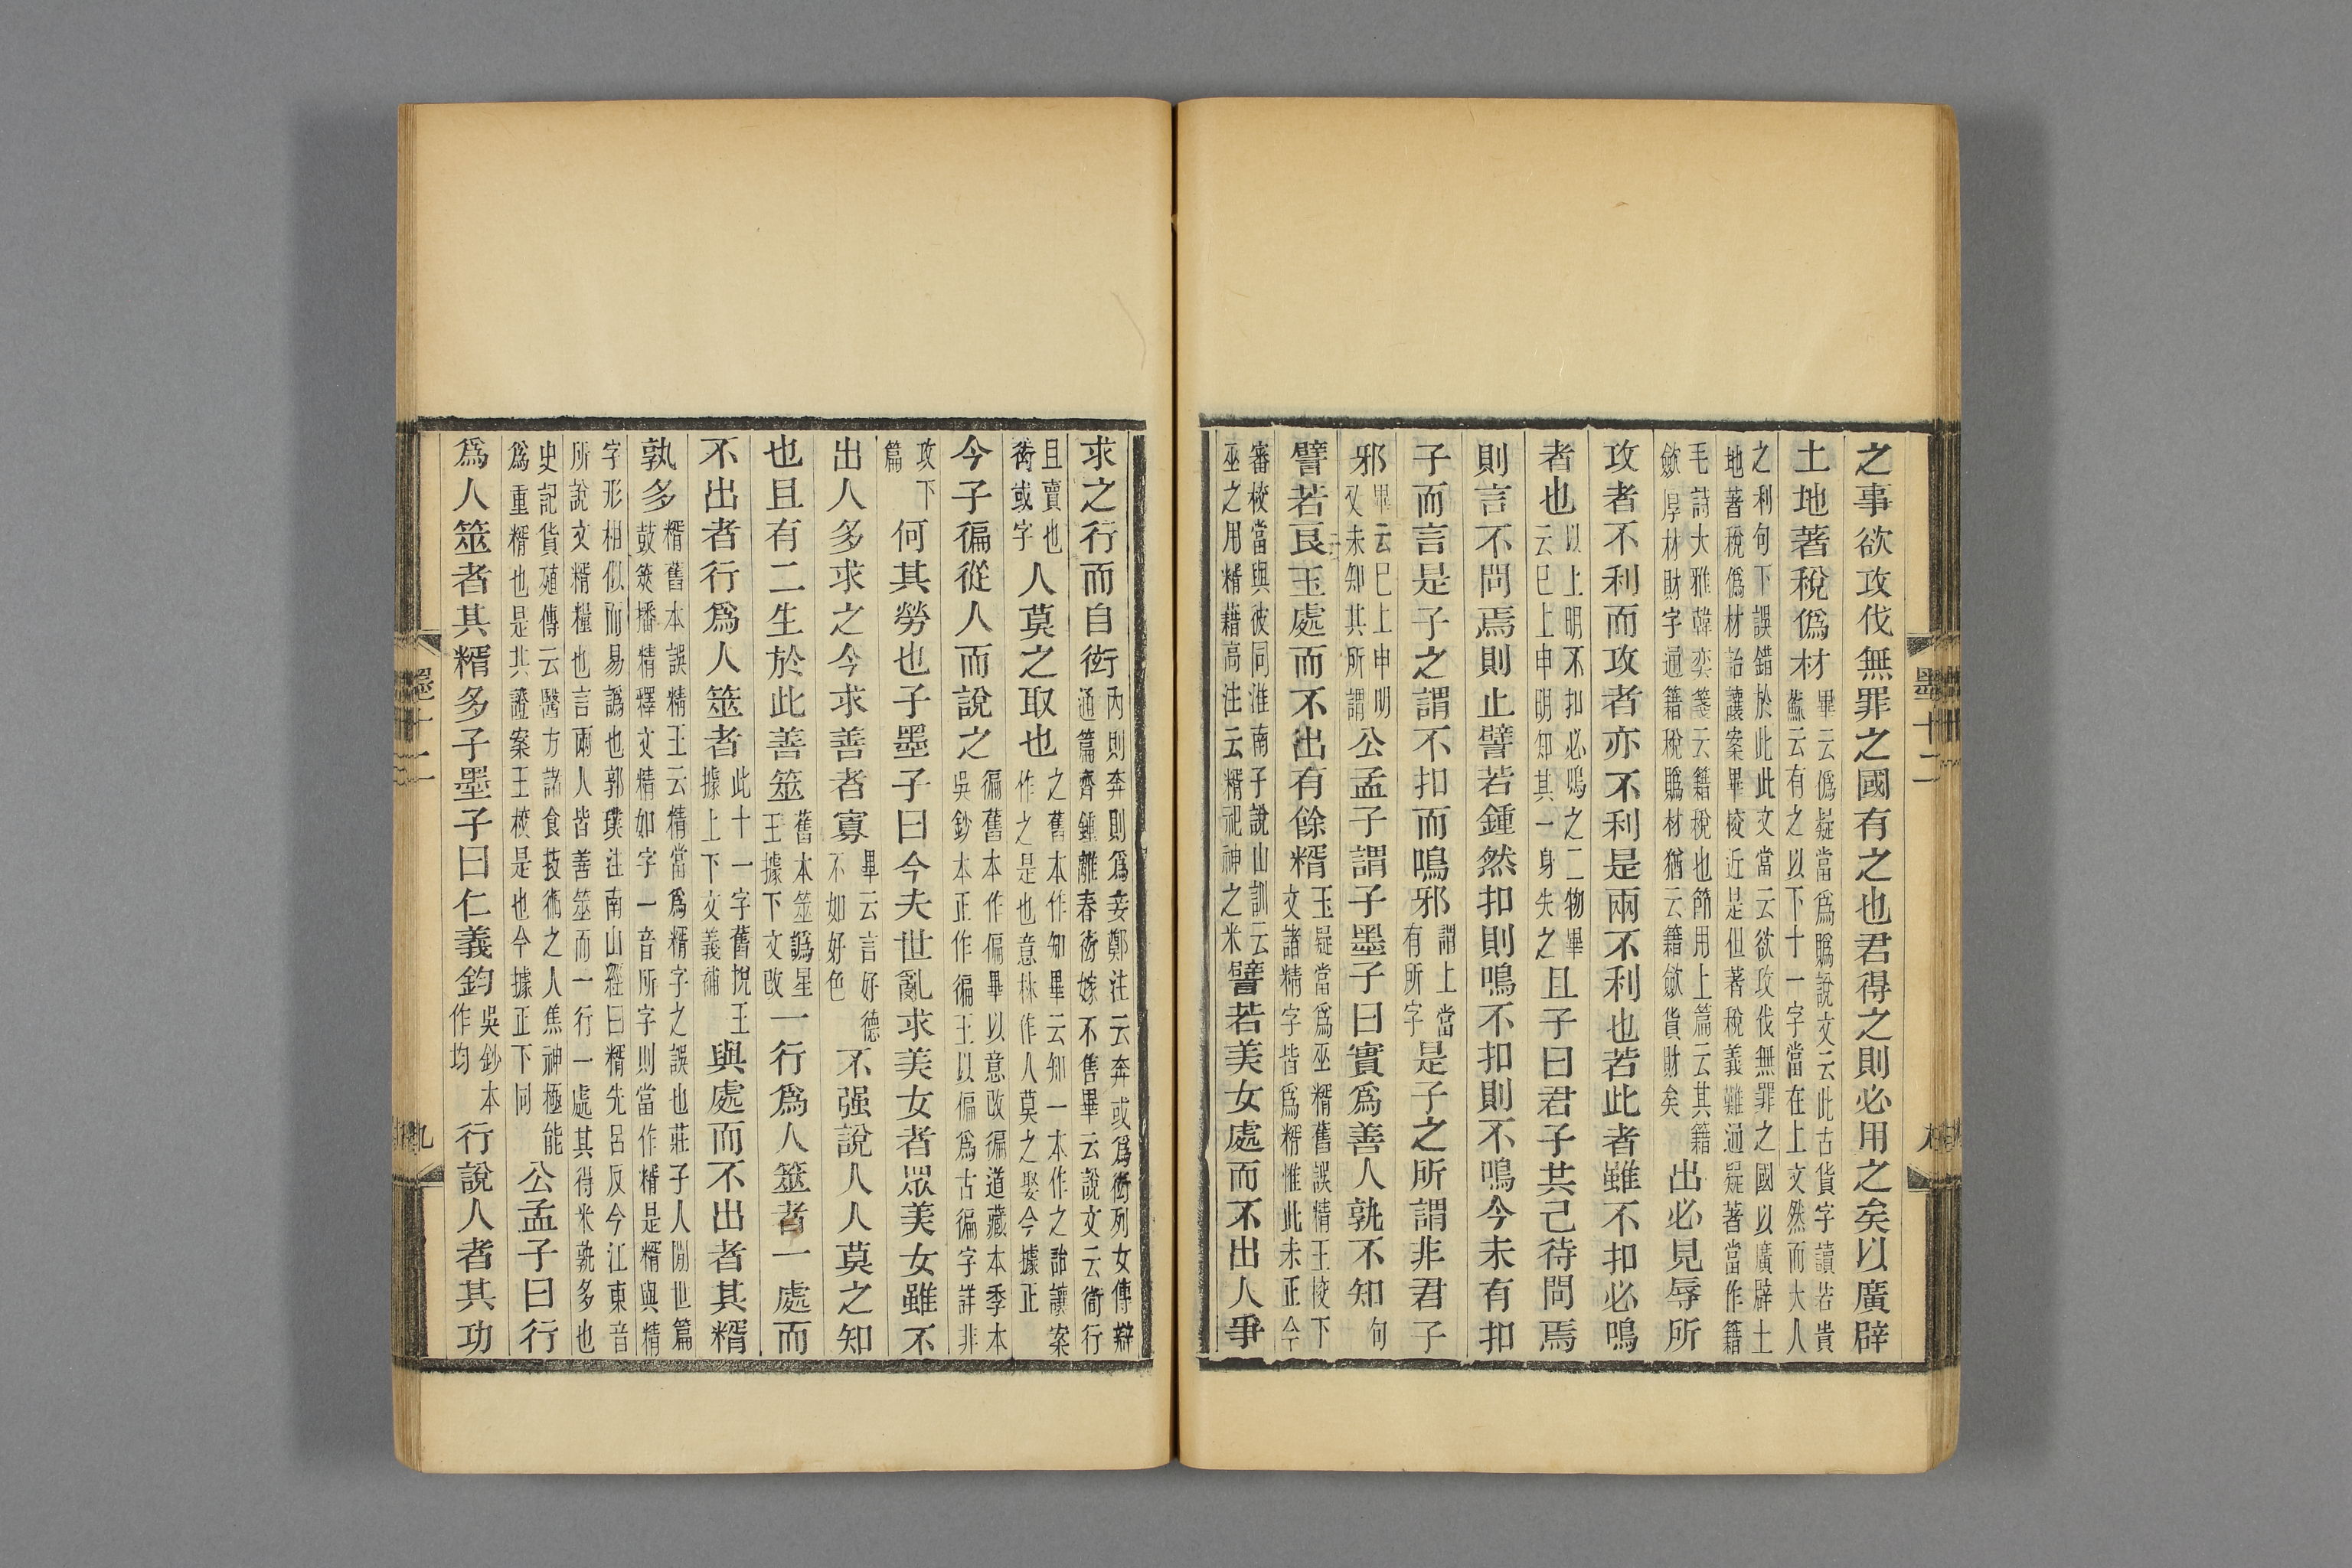 之事欲攻伐無罪之國有之也君得之則必用之矣以廣辟
土地著稅僞材畢云僞疑當爲䝿說文云此古貨字讀若貴蘇云有之以下十一字當在上文然而大人
之利句下誤錯於此此文當云欲攻伐無罪之國以廣辟土地著稅僞材詒讓案畢校近是但著稅義難通疑著當作籍
毛詩大雅韓奕箋云籍稅也節用上篇云其籍斂厚材財字通籍稅䝿材猶云籍斂貨財矣出必見辱所
攻者不利而攻者亦不利是兩不利也若此者雖不扣必鳴
者也以上明不扣必鳴之二物畢云已上申明知其一身失之且子曰君子共己待問焉
則言不問焉則止譬若鍾然扣則鳴不扣則不鳴今未有扣
子而言是子之謂不扣而鳴邪謂上當有所字是子之所謂非君子
邪畢云已上申明又未知其所謂公孟子謂子墨子曰實爲善人孰不知句
譬若良玉處而不出有餘糈玉疑當爲巫糈舊誤精王校下文諸精字皆爲糈惟此未正今
審校當與彼同淮南子說山訓云巫之用糈藉高注云糈祀神之米譬若美女處而不出人爭
求之行而自衒內則奔則爲妾鄭注云奔或爲衒列女傳辯通篇齊鍾離春衒嫁不售畢云說文云衙行
且賣也衒或字人莫之取也之舊本作知畢云知一本作之詒讓案作之是也意林作人莫之娶今據正
今子徧從人而說之徧舊本作偏畢以意改徧道藏本季本吳鈔本正作徧王以偏爲古徧字詳非
攻下篇何其勞也子墨子曰今夫世亂求美女者眾美女雖不
出人多求之今求善者寡畢云言好德不如好色不强說人人莫之知
也且有二生於此善筮舊本筮譌星王據下文改一行爲人筮者一處而
不出者行爲人筮者此十一字舊捝王據上下文義補與處而不出者其糈
孰多糈舊本誤精王云精當爲糈字之誤也莊子人閒世篇鼓筴播精釋文精如字一音所字則當作糈是糈與精
字形相似而易譌也郭璞注南山經曰糈先呂反今江東音所說文糈糧也言兩人皆善筮而一行一處其得米孰多也
史記貨殖傳云醫方諸食技術之人焦神極能爲重糈也是其證案王校是也今據正下同公孟子曰行
爲人筮者其糈多子墨子曰仁義鈞吳鈔本作均行說人者其功
墨十二
九